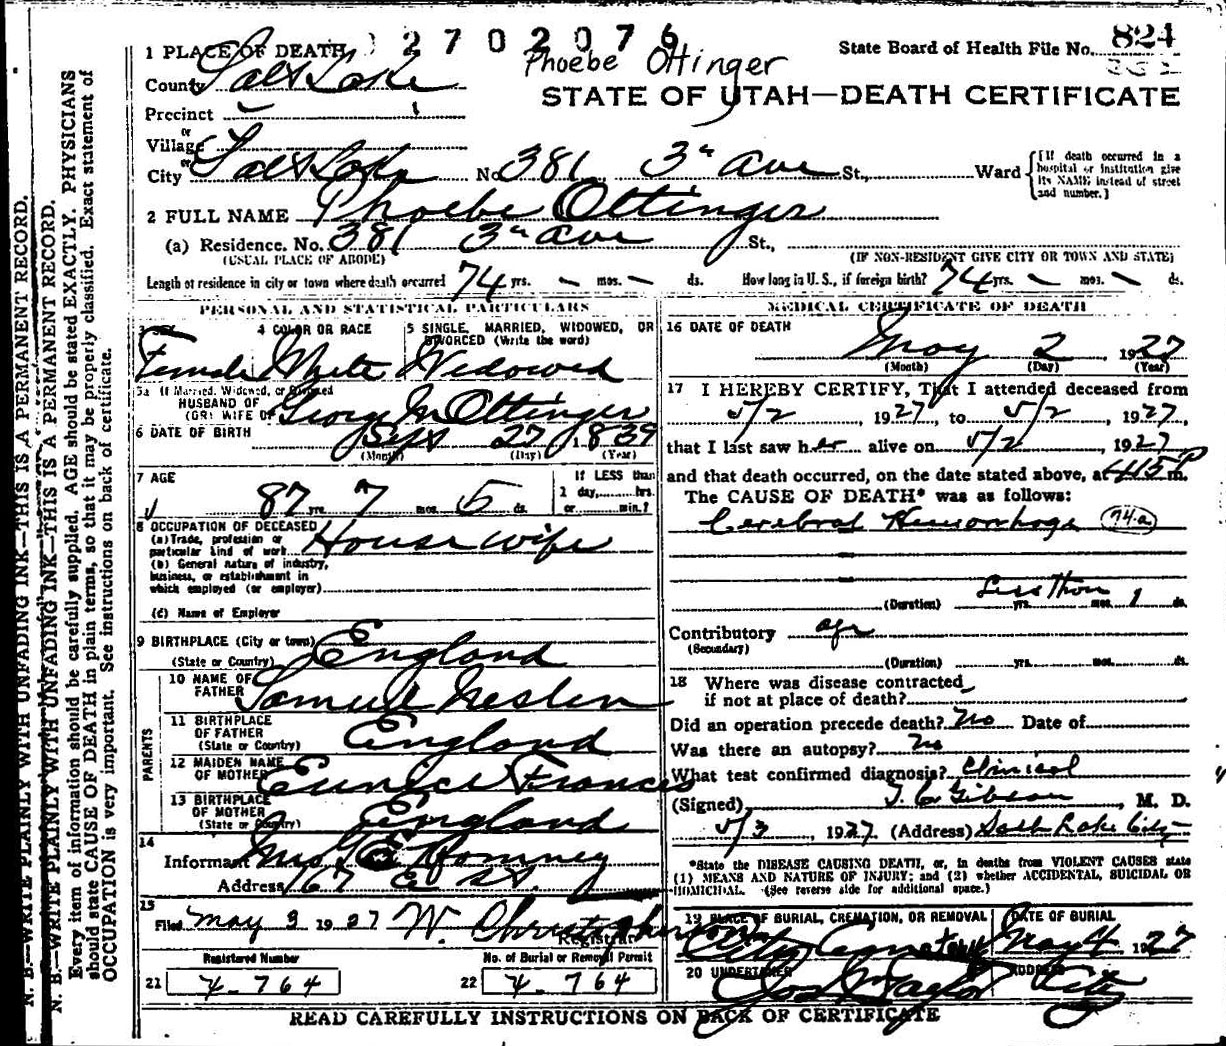 2702076
1 PLACE OF DEATH
Phoebe Ottinger
State Board of Health File No. 824
County Salt Lake
STATE OF UTAH—DEATH CERTIFICATE
Precinct
or
Village
or
City Salt Lake No. 381 3rd Ave St., Ward
[If death occurred in a hospital or institution give its NAME instead of street and number.]
2 FULL NAME Phoebe Ottinger
(a) Residence. No. 381 3rd Ave St.,
(USUAL PLACE OF ABODE) (IF NON-RESIDENT GIVE CITY OR TOWN AND STATE)
Length of residence in city or town where death occurred 74 yrs. — mos. — ds. How long in U. S., if foreign birth? 74 yrs. — mos. — ds.
PERSONAL AND STATISTICAL PARTICULARS
3 SEX 4 COLOR OR RACE 5 SINGLE, MARRIED, WIDOWED, OR
DIVORCED (Write the word)
Female White Widowed
5a If Married, Widowed, or Divorced
HUSBAND OF
(OR) WIFE OF George M Ottinger
6 DATE OF BIRTH Sept 27, 1839
(Month) (Day) (Year)
7 AGE
If LESS than
1 day, hrs.
or min.?
87 yrs. 7 mos. 5 ds.
8 OCCUPATION OF DECEASED
(a) Trade, profession or
particular kind of work House wife
(b) General nature of industry,
business, or establishment in
which employed (or employer)
(c) Name of Employer
9 BIRTHPLACE (City or town)
(State or Country) England
PARENTS
10 NAME OF
FATHER Samuel Neslen
11 BIRTHPLACE
OF FATHER
(State or Country) England
12 MAIDEN NAME
OF MOTHER Eunice Frances
13 BIRTHPLACE
OF MOTHER
(State or Country) England
14
Informant Mrs G E Romney
Address 167 E St.
15
Filed May 3 1927 W. Christopherson
Registrar
Registered Number No. of Burial or Removal Permit
21 4-764 22 4-764
MEDICAL CERTIFICATE OF DEATH
16 DATE OF DEATH
May 2, 1927
(Month) (Day) (Year)
17 I HEREBY CERTIFY, That I attended deceased from
5/2, 1927, to 5/2, 1927,
that I last saw her alive on 5/2 1927
and that death occurred, on the date stated above, at 4:15 P m.
The CAUSE OF DEATH* was as follows:
Cerebral Hemorrhage 74a
(Duration) Less Than yrs. mos. 1 ds.
Contributory age
(Secondary)
(Duration) yrs. mos. ds.
18 Where was disease contracted,
if not at place of death?
Did an operation precede death? No Date of
Was there an autopsy? No
What test confirmed diagnosis? Clinical
(Signed) J. C. Gibson, M. D.
5/3, 1927. (Address) Salt Lake City
*State the DISEASE CAUSING DEATH, or, in deaths from VIOLENT CAUSES state
(1) MEANS AND NATURE OF INJURY; and (2) whether ACCIDENTAL, SUICIDAL OR
HOMICIDAL. (See reverse side for additional space.)
19 PLACE OF BURIAL, CREMATION, OR REMOVAL DATE OF BURIAL
City Cemetery May 4 1927
20 UNDERTAKER ADDRESS
Jos Wm Taylor City
READ CAREFULLY INSTRUCTIONS ON BACK OF CERTIFICATE
N. B.—WRITE PLAINLY WITH UNFADING INK—THIS IS A PERMANENT RECORD.
N. B.—WRITE PLAINLY WITH UNFADING INK—THIS IS A PERMANENT RECORD.
Every item of information should be carefully supplied. AGE should be stated EXACTLY. PHYSICIANS
should state CAUSE OF DEATH in plain terms, so that it may be properly classified. Exact statement of
OCCUPATION is very important. See instructions on back of certificate.